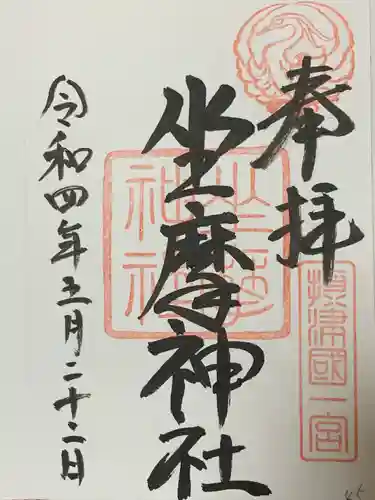 奉拝
攝津國一宮
坐摩神社
坐摩神社
令和四年五月二十二日